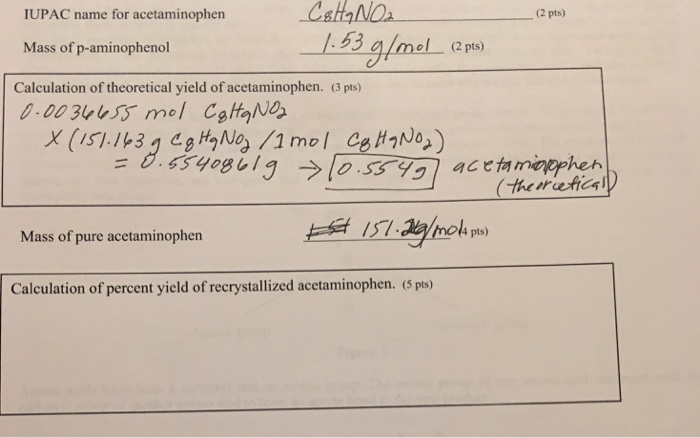 IUPAC name for acetaminophen C8H9NO2 (2 pts)
Mass of p-aminophenol 1.53 g/mol (2 pts)
Calculation of theoretical yield of acetaminophen. (3 pts)
0.0036655 mol C8H9NO2
X (151.163 g C8H9NO2 /1 mol C8H9NO2)
= 0.5540861g → 0.554g acetaminophen
(theoretical)
Mass of pure acetaminophen 151.2g/mol pts)
Calculation of percent yield of recrystallized acetaminophen. (5 pts)